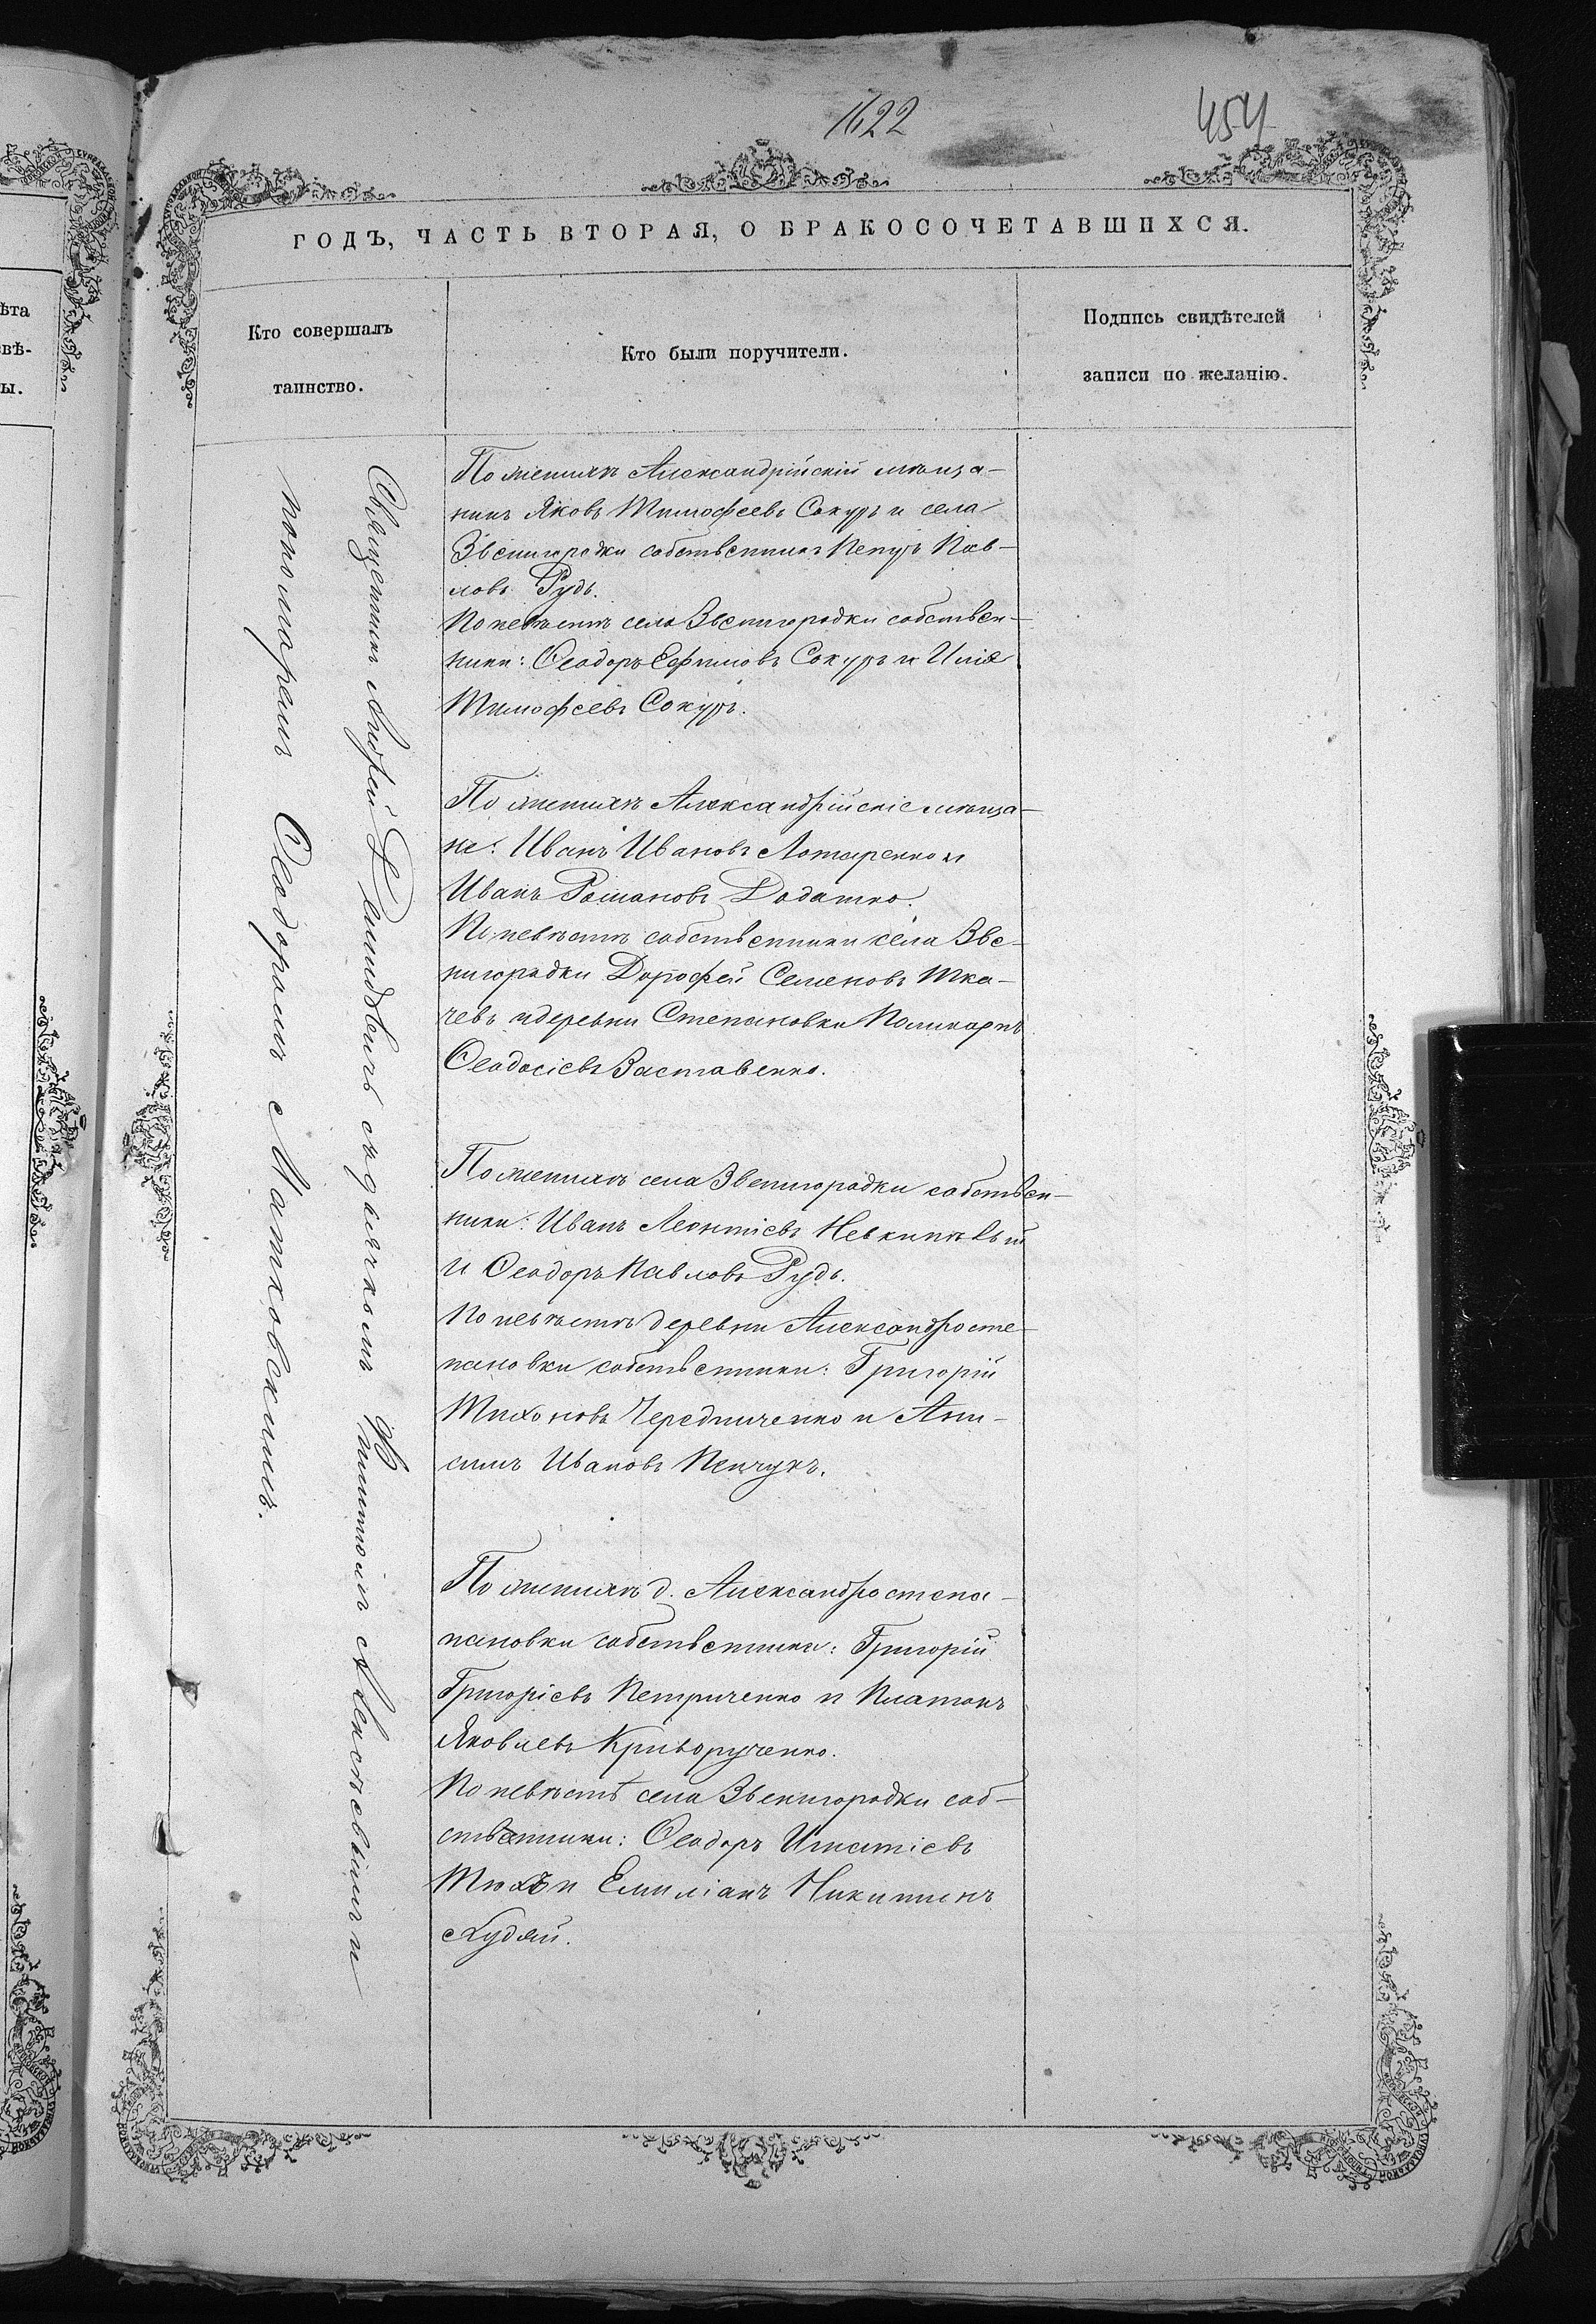 1622
454
ГОДЪ, ЧАСТЬ ВТОРАЯ, О БРАКОСОЧЕТАВШИХСЯ.
Кто совершалъ
таинство.
Кто были поручители.
Подпись свидѣтелей
записи по желанію.
Священникъ Андрей Демидовичъ съ дьячкомъ Алексѣевымъ и
пономаремъ Ѳеодоромъ Матковскимъ.
По женихѣ Александрійскій мѣща-
нинъ Яковъ Тимофеевъ Сокуръ и села
Звенигородки собственникъ Петръ Пав-
ловъ Рудь.
По невѣстѣ села Звенигородки собствен-
ники: Ѳеодоръ Ефимовъ Сокуръ и Илія
Тимофеевъ Сокуръ.
По женихѣ Александрійскіе мѣща-
не: Иванъ Ивановъ и
Иванъ Романовъ Додатко.
По невѣстѣ собственники села Зве-
нигородки Дорофей Семеновъ Тка-
чевъ и деревни Степановки Поликарпъ
Ѳеодосіевъ Заставенко.
По женихѣ села Звенигородки собствен-
ники: Иванъ Леонтіевъ
и Ѳеодоръ Павловъ Рудь.
По невѣстѣ деревни Александросте-
пановки собственники: Григорій
Тихоновъ Чередниченко и Ани-
симъ Ивановъ Пенчукъ.
По женихѣ д. Александростепа-
пановки собственники: Григорій
Григоріевъ Петриченко и Платонъ
Яковлевъ Криворученко.
По невѣстѣ села Звенигородки соб-
ственники: Ѳеодоръ Игнатіевъ
и Емиліанъ Никитинъ
Худяй.
ѣта
свѣ-
ы.